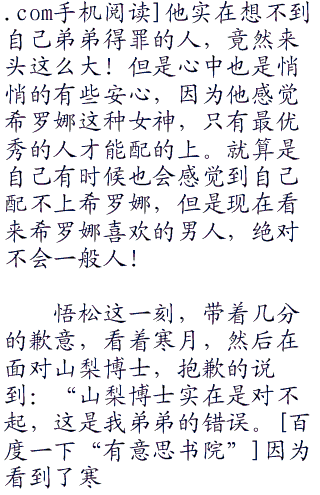 .com手机阅读]他实在想不到
自己弟弟得罪的人，竟然来
头这么大！但是心中也是悄
悄的有些安心，因为他感觉
希罗娜这种女神，只有最优
秀的人才能配的上。就算是
自己有时候也会感觉到自己
配不上希罗娜，但是现在看
来希罗娜喜欢的男人，绝对
不会一般人！
悟松这一刻，带着几分
的歉意，看着寒月，然后在
面对山梨博士，抱歉的说
到：“山梨博士实在是对不
起，这是我弟弟的错误。[百
度一下“有意思书院”]因为
看到了寒